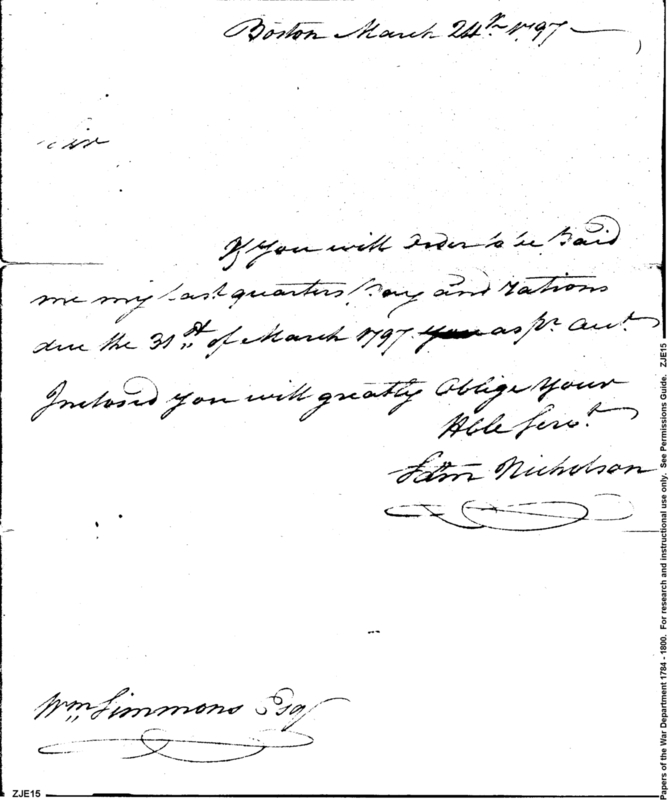 Boston March 24th 1797
Sir
If you will order to be paid
me my last quarters pay and rations
due the 31st of March 1797 as pr. Acct.
Inclosed you will greatly Oblige your
Hble Servt.
Nicholson
Wm Simmons Esq
ZJE15
Papers of the War Department 1784 - 1800. For research and instructional use only. See Permissions Guide. ZJE15